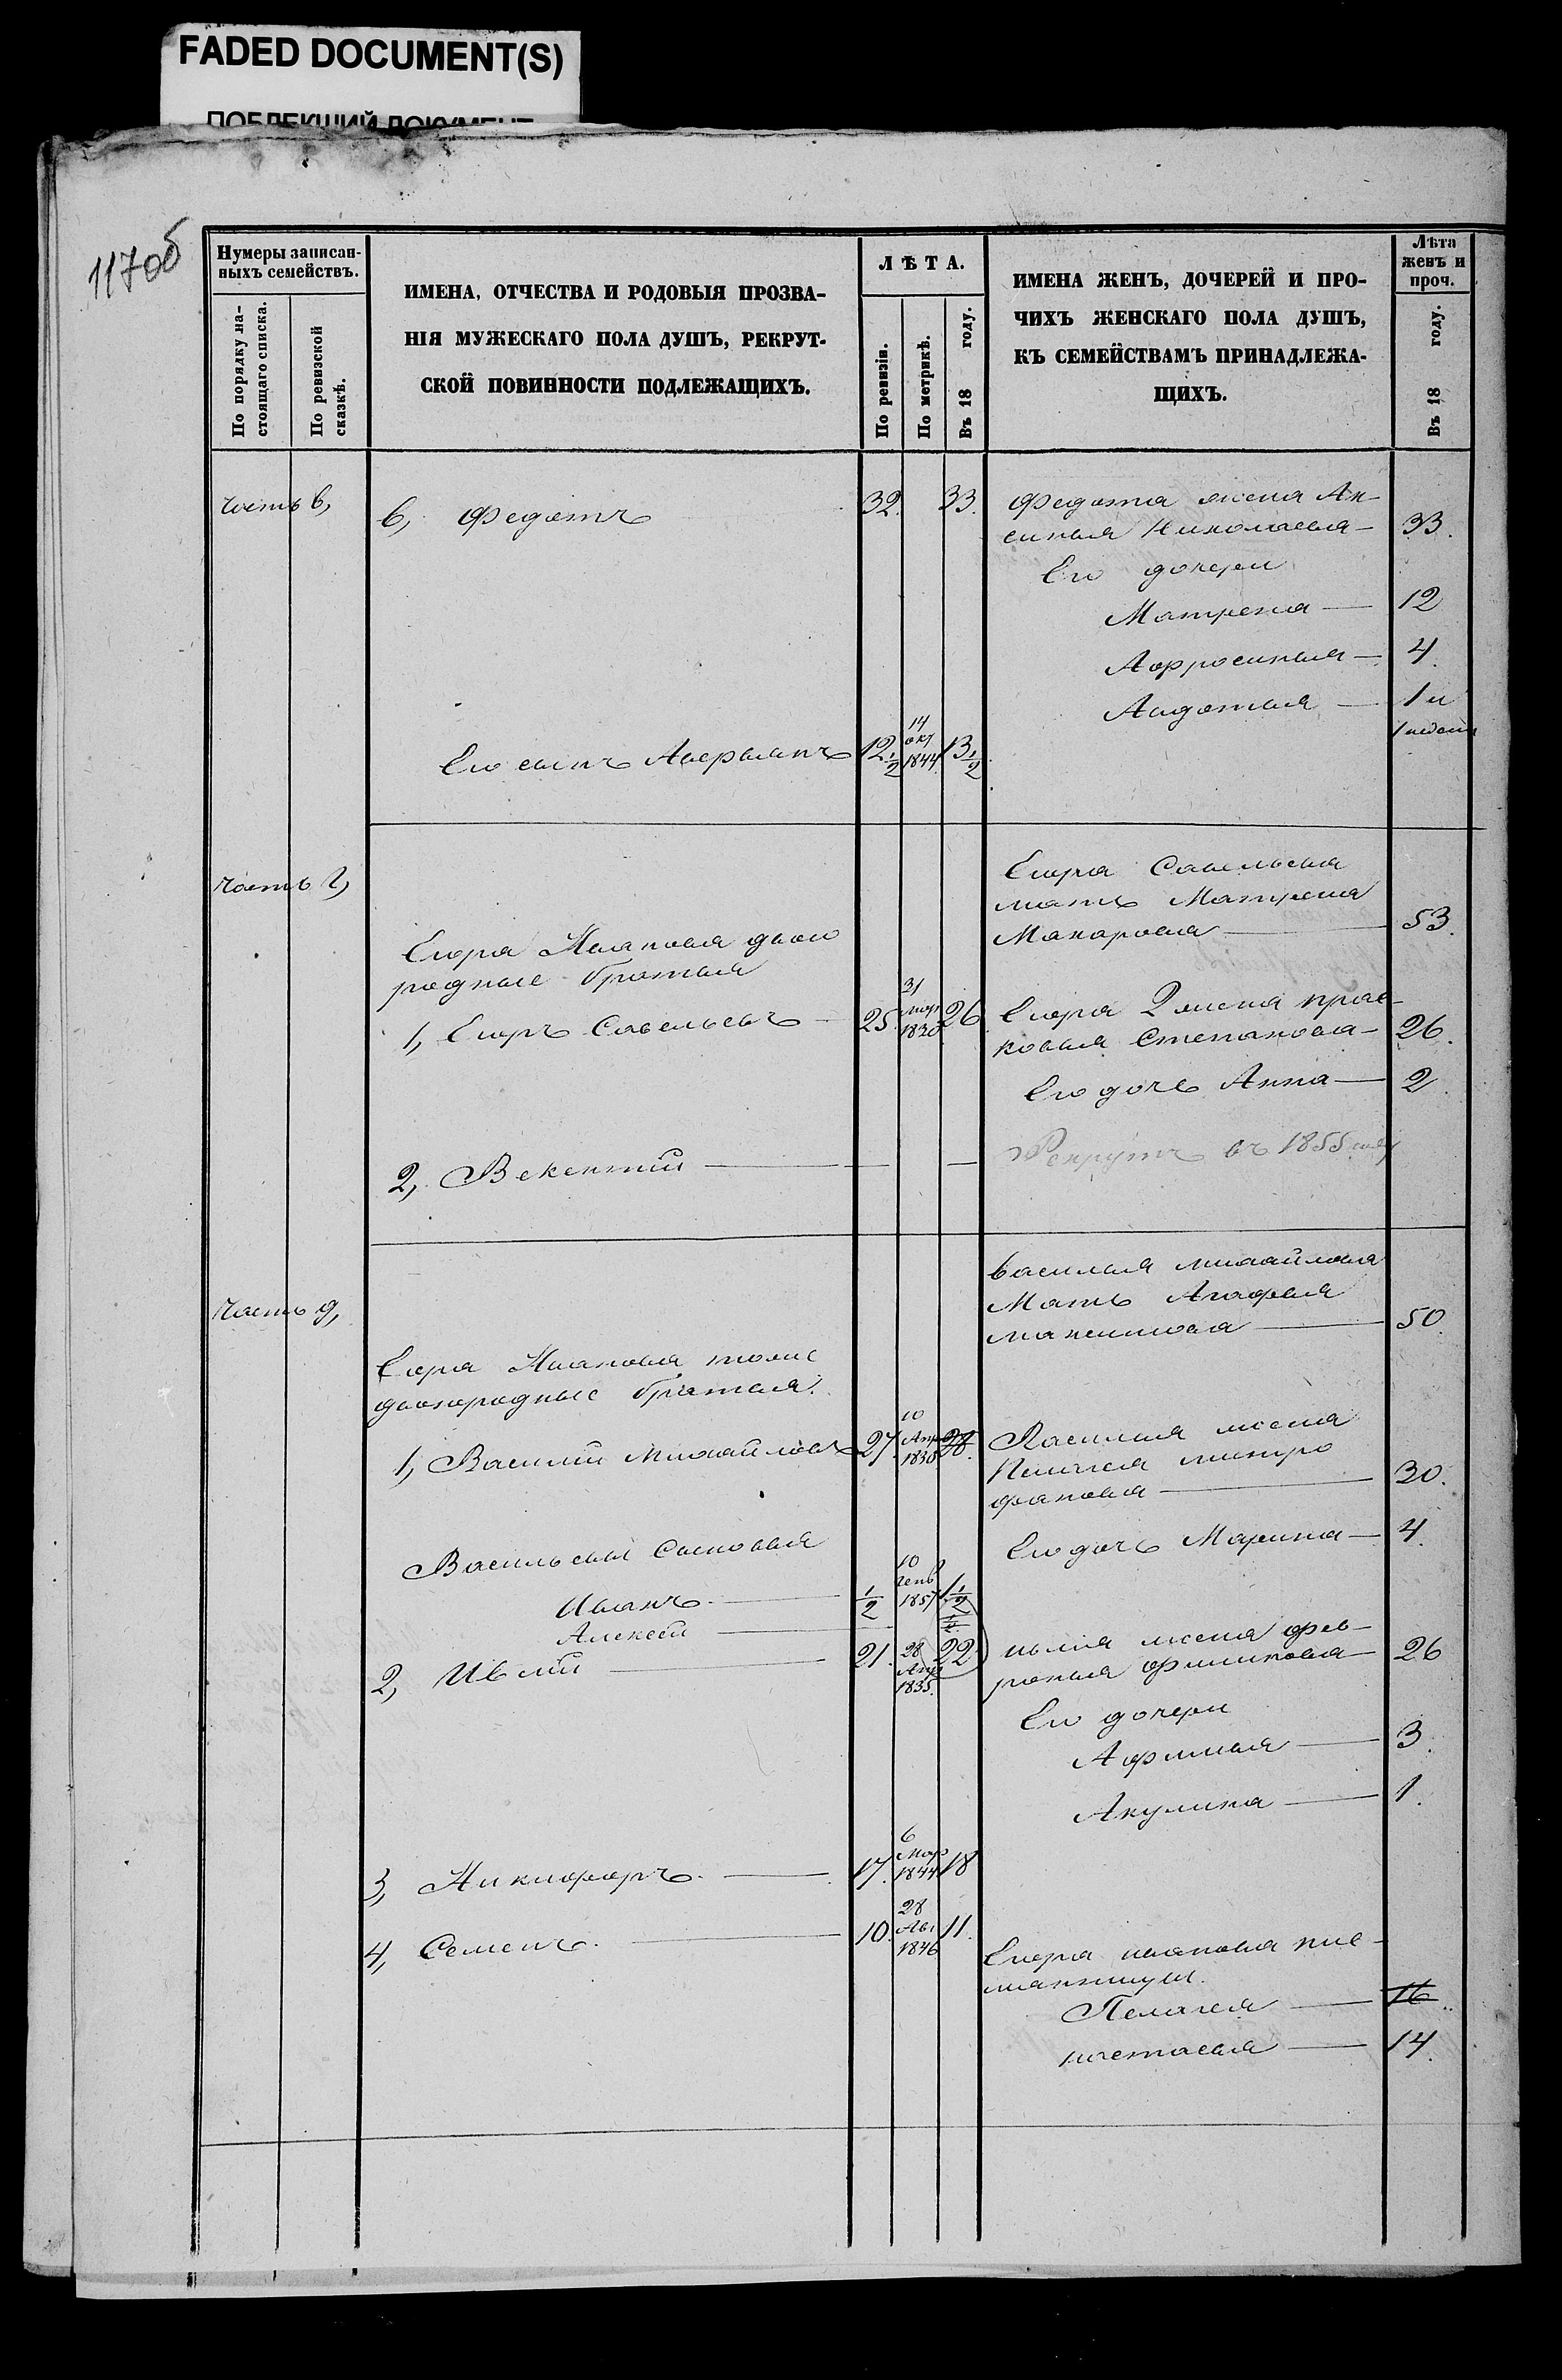 FADED DOCUMENT(S)
ПОБЛЕКШИЙ ДОКУМЕНТ
117об
Нумеры записан-
ныхъ семействъ.
По порядку на-
стоящаго списка.
По ревизской
сказкѣ.
ИМЕНА, ОТЧЕСТВА И РОДОВЫЯ ПРОЗВА-
НІЯ МУЖЕСКАГО ПОЛА ДУШЪ, РЕКРУТ-
СКОЙ ПОВИННОСТИ ПОДЛЕЖАЩИХЪ.
ЛѢТА.
По ревизіи.
По метрикѣ.
Въ 18 году.
ИМЕНА ЖЕНЪ, ДОЧЕРЕЙ И ПРО-
ЧИХЪ ЖЕНСКАГО ПОЛА ДУШЪ,
КЪ СЕМЕЙСТВАМЪ ПРИНАДЛЕЖА-
ЩИХЪ.
Лѣта
женъ и
проч.
Въ 18 году.
часть в,
6, Федотъ 32. 33.
Федота жена Ак-
синья Николаева — 33.
Его дочери
Матрена — 12
Афросинья — 4.
Авдотья — 1 и
1 недели
Его сынъ Аверьянъ 12 1/2 14 окт 1844 13 1/2
часть г,
Егора Савельева
мать Матрена
Макарова — 53.
Егора Иванова двою
родные братья
1, Егоръ Савельевъ — 25. 31 1830 26
Егора 2 жена прас-
ковья Степанова — 26.
Его дочь Анна — 2.
2, Викентий — — —
Рекрутъ въ 1855 году
часть д,
Василья михайлова
Мать Агафья
максимова — 50.
Егора Иванова тоже
двоюродные братья.
1, Василий Михайловъ 27 10 Апр 1830 28.
Василья жена
Пелагея митро
фанова — 30.
Его дочь Марина — 4.
Васильевы Сыновья
Иванъ — 1/2 10 Генв 1857 1 1/2
Алексей —
2, Ивлий — 21. 28 Апр 1835. 22
ивлия жена фев-
ронья филипова — 26
Его дочери
Афимья — 3.
Акулина — 1.
3, Никифоръ. — 17. 6 Мар 1844 18
4, Семенъ. — 10. 28 Авг 1846 11.
Егора иванова пле-
мянницы.
Пелагея — 16.
настасья — 14.